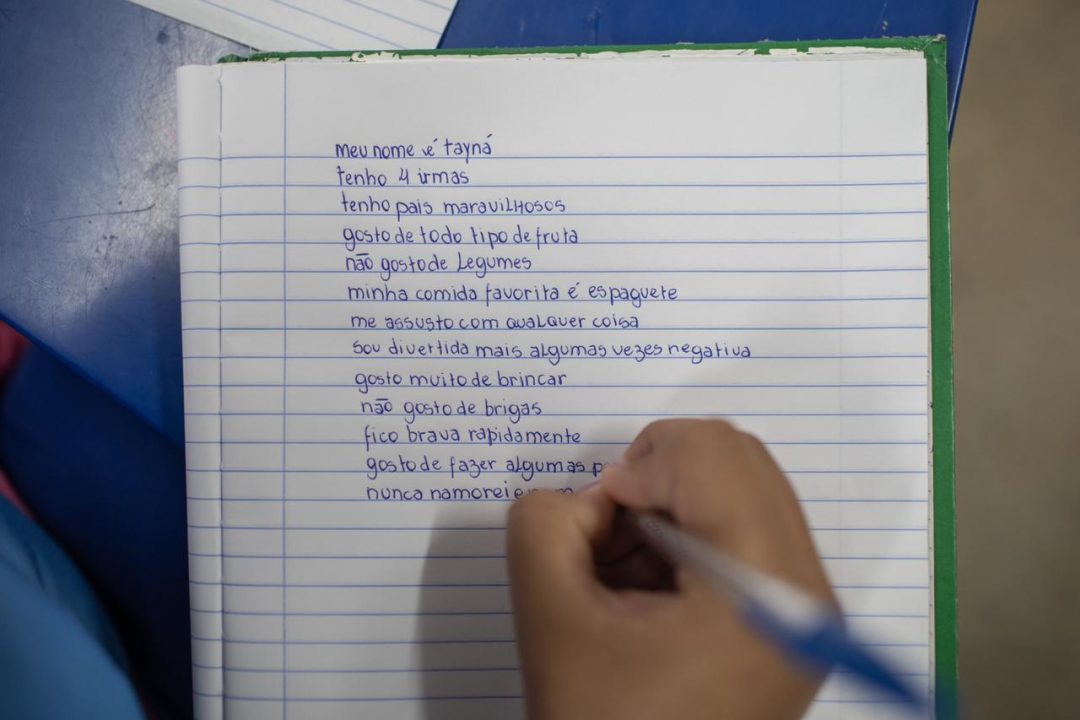 meu nome é tayná
tenho 4 irmas
tenho pais maraviLHosos
gosto de todo tipo de fruta
não gosto de Legumes
minha comida favorita é espaguete
me assusto com quaLquer coisa
sou divertida mais algumas vezes negativa
gosto muito de brincar
não gosto de brigas
fico brava rapidamente
gosto de fazer algumas
nunca namorei